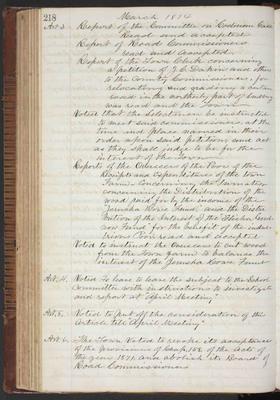 218 March 1874
Art. 3. Report of the Committee on Cordwain
Read and accepted.
Report of Road Commissioners
read and accepted.
Report of the Town Clerk concerning
a petition of J. C. and others
to the County Commissioners, for
relocating and grading a certain
road in the northerly part of
was read and the Town
Voted that the Selectmen be instructed
to meet said commissioners at the
time and place named in their
order upon said petition, and act
as they shall judge to be for the
interest of the Town.
Reports of the Overseers of the Poor of the
Receipts and Expenditures of the town
Farm. Concerning the Journals,
concerning the Distribution of the
wood paid for by the income of the
Jerusha Howe Fund, and the Distri-
bution of the Interest of the
Fund for the benefit of the indus-
trious Poor read and accepted
Voted to instruct the Overseers to cut wood
from the Town farm to balance the
interest of the Jerusha Howe Fund
Art. 4. Voted to leave the subject to the School
Committee with instructions to investigate
and report at April Meeting.
Art. 5. Voted to put off the consideration of the
Article till April Meeting.
Art. 6. The Town Voted to revoke its acceptance
of the provisions of Chap. 158 of the Acts of
the year 1871, and abolish its Board of
Road Commissioners